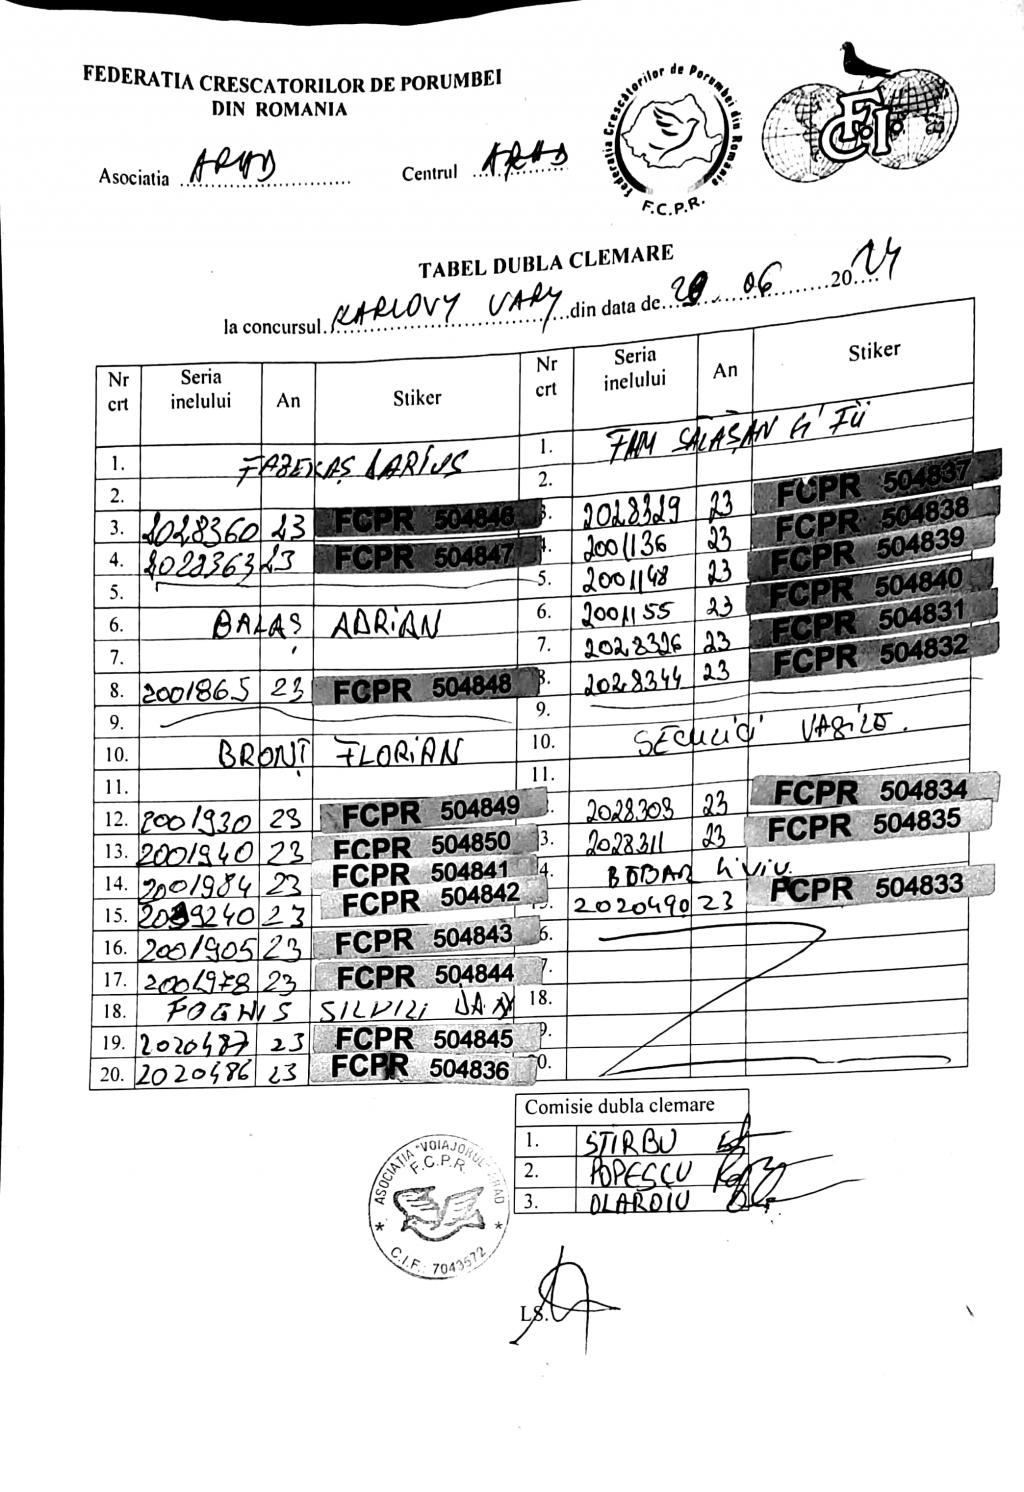 FEDERATIA CRESCATORILOR DE PORUMBEI
DIN ROMANIA
Asociatia ARAD
Centrul ARAD
Federatia Crescătorilor de Porumbei din Romania
F.C.P.R.
FCI
TABEL DUBLA CLEMARE
la concursul KARLOVY VARY din data de 29 06 2024
Nr crt Seria inelului An Stiker Nr crt Seria inelului An Stiker
1. FAZEKAȘ DARIUS 1. FAM SĂLĂȘAN G' FII
2. 2.
3. 2028360 23 FCPR 504846 3. 2028329 23 FCPR 504837
4. 2028363 23 FCPR 504847 4. 2001136 23 FCPR 504838
5. 5. 2001148 23 FCPR 504839
6. BALAȘ ADRIAN 6. 2001155 23 FCPR 504840
7. 7. 2028326 23 FCPR 504831
8. 2001865 23 FCPR 504848 8. 2028344 23 FCPR 504832
9. 9.
10. BRONȚ FLORIAN 10. SECULICI VASILE.
11. 11.
12. 2001930 23 FCPR 504849 2028303 23 FCPR 504834
13. 2001940 23 FCPR 504850 3. 2028311 23 FCPR 504835
14. 2001984 23 FCPR 504841 4. BODBAR LIVIU.
15. 2099240 23 FCPR 504842 2020490 23 FCPR 504833
16. 2001905 23 FCPR 504843 6.
17. 2001978 23 FCPR 504844 7.
18. SILVIU DAN 18.
19. 2020487 23 FCPR 504845 9.
20. 2020486 23 FCPR 504836 0.
Comisie dubla clemare
1. STIRBU
2. POPESCU
3. OLARDIU
ASOCIATIA "VOIAJORUL" ARAD
F.C.P.R
C.I.F.: 7043572
LS.